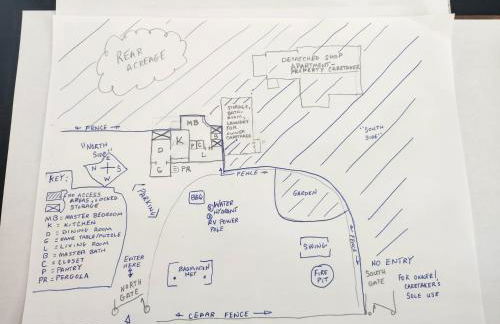 REAR
ACREAGE
DETACHED SHOP
APARTMENT-
PROPERTY CARETAKER
STORAGE,
BATH-
ROOM,
LAUNDRY
FOR
CARETAKER
MB
← FENCE →
D
K
P
C
B
L
G
PR
"SOUTH
SIDE"
"NORTH
SIDE"
E
N
S
W
FENCE →
KEY:
NO ACCESS
AREAS, LOCKED
STORAGE
MB = MASTER BEDROOM
K = KITCHEN
D = DINING ROOM
G = GAME TABLE/PUZZLE
L = LIVING ROOM
B = MASTER BATH
C = CLOSET
P = PANTRY
PR = PERGOLA
PARKING
BBQ
WATER
HYDRANT
RV POWER
POLE
GARDEN
FENCE
SWING
ENTER
HERE
BADMINTON
NET
FIRE
PIT
NORTH
GATE
← CEDAR FENCE →
NO ENTRY
SOUTH
GATE
FOR OWNER/
CARETAKERS
SOLE USE